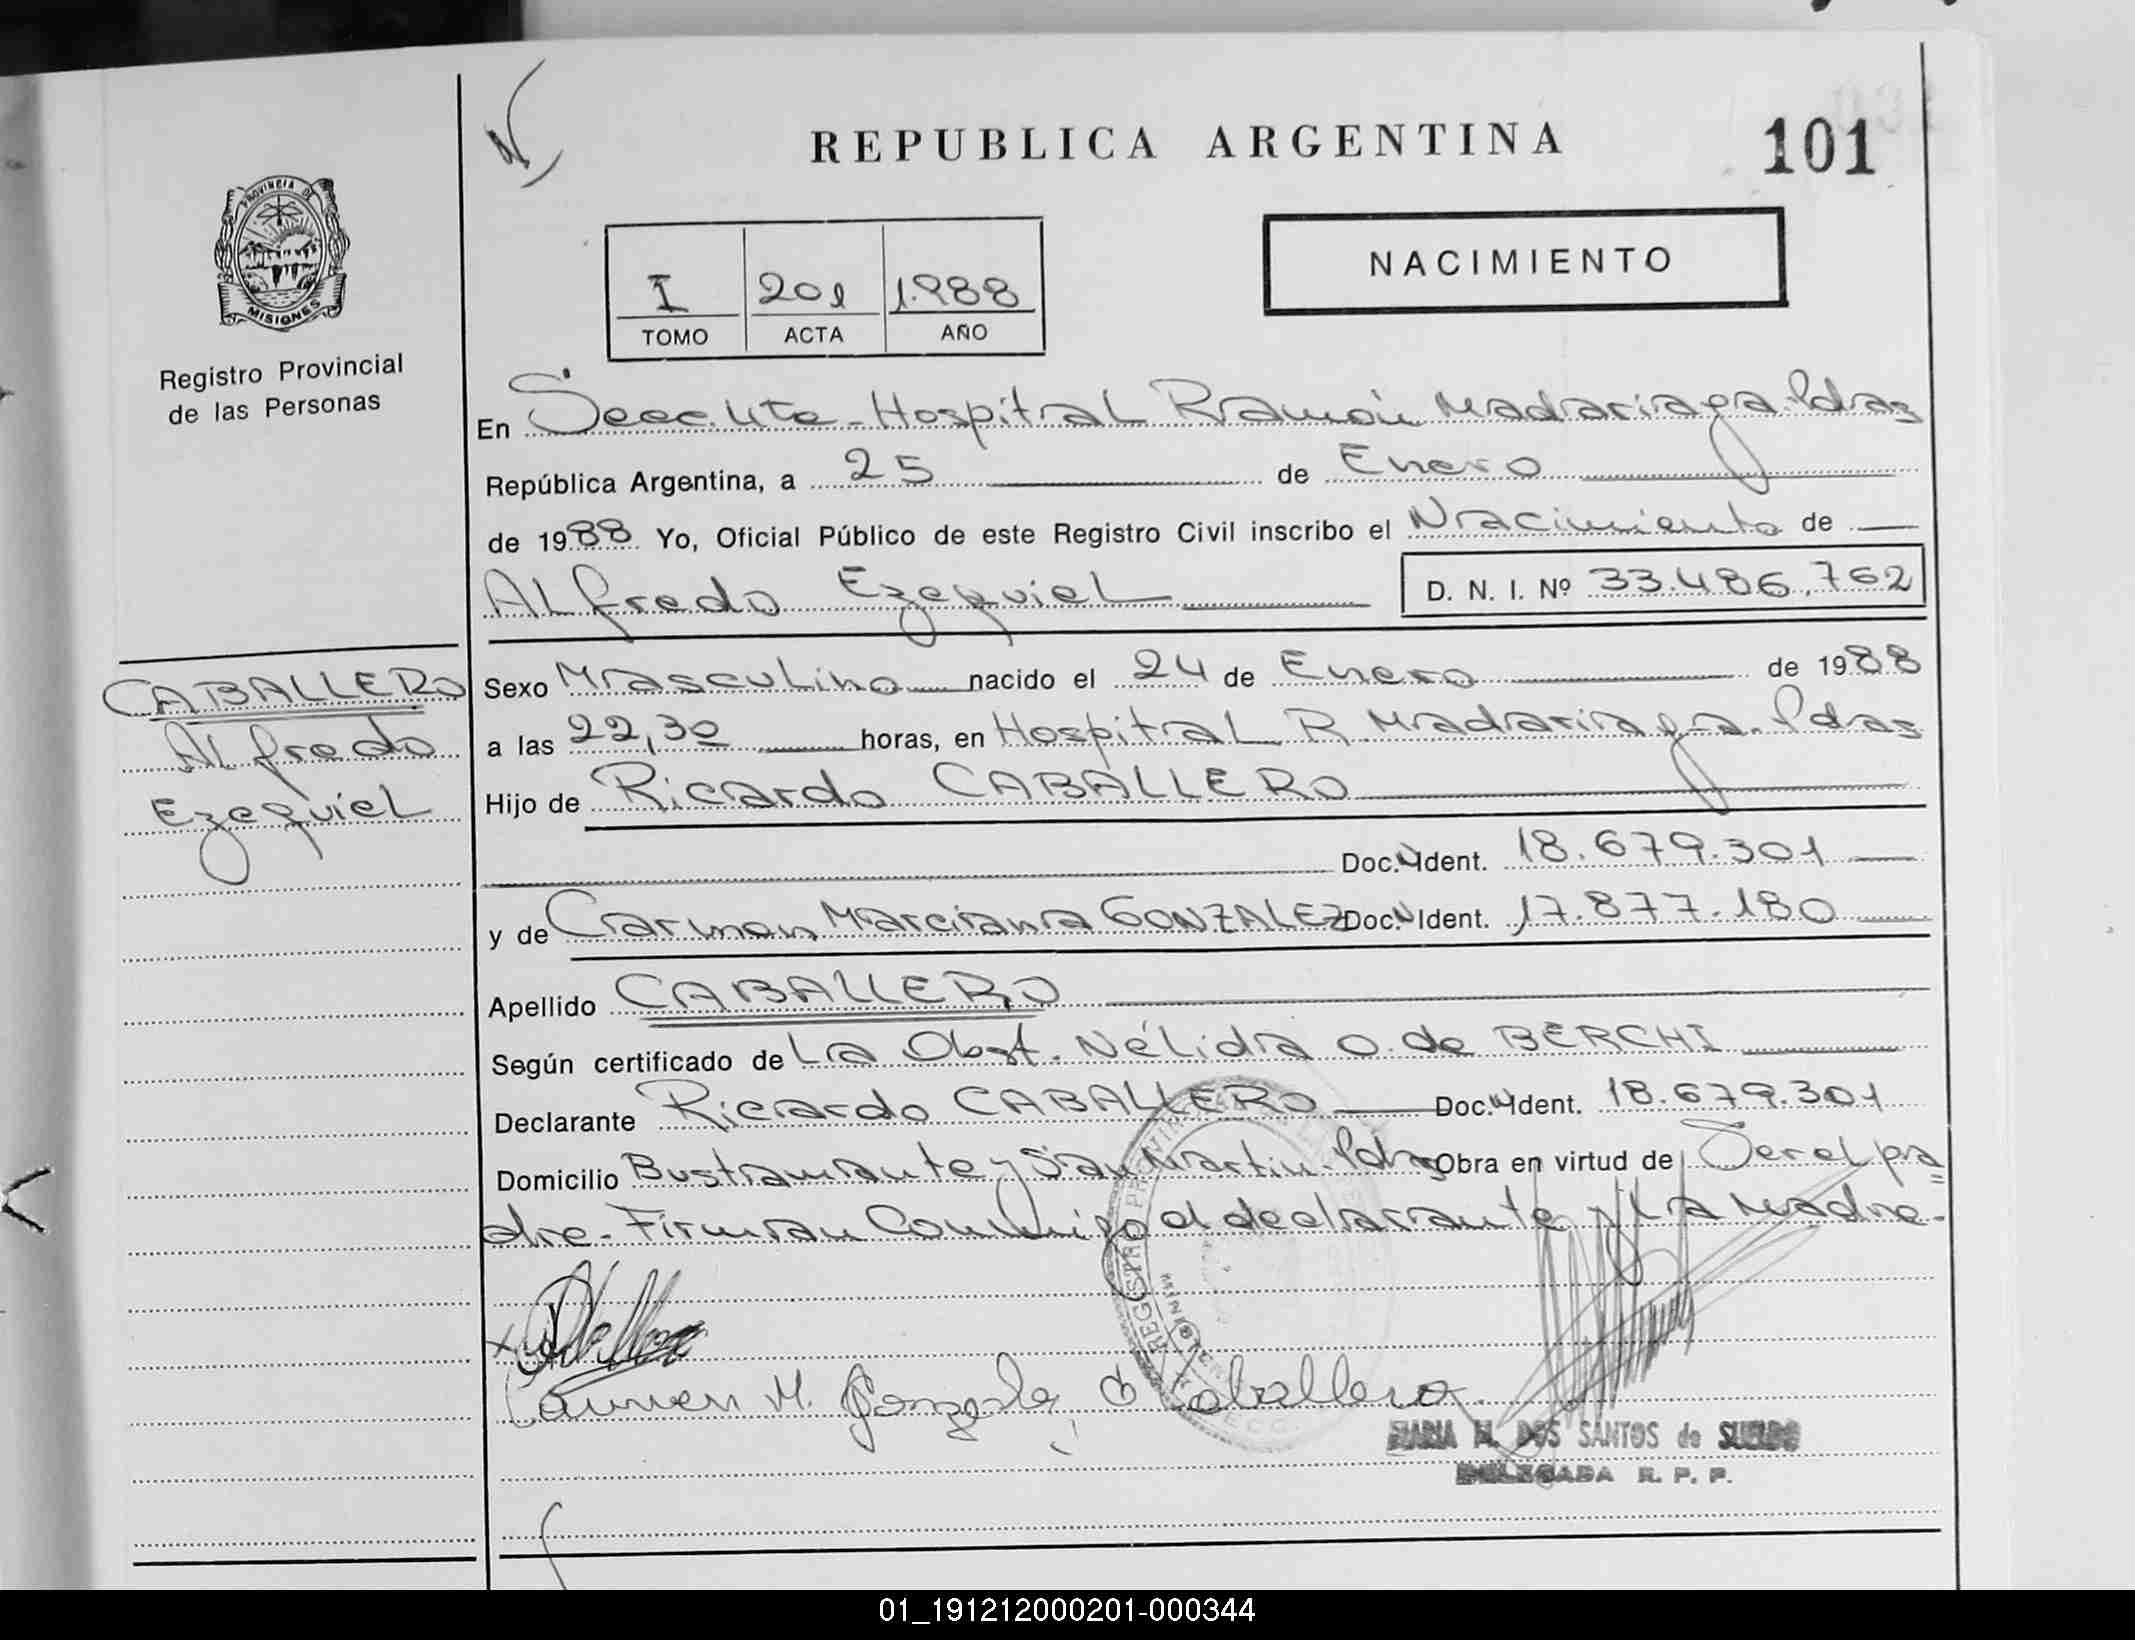 REPUBLICA ARGENTINA
101
PROVINCIA DE
MISIONES
Registro Provincial
de las Personas
I 201 1.988
TOMO ACTA AÑO
NACIMIENTO
En Secc. Hospital Ramón Madariaga. Pdas
República Argentina, a 25 de Enero
de 1988 Yo, Oficial Público de este Registro Civil inscribo el Nacimiento de
Alfredo Ezequiel D. N. I. Nº 33.486.762
CABALLERO
Alfredo
Ezequiel
Sexo Masculino nacido el 24 de Enero de 1988
a las 22,30 horas, en Hospital R. Madariaga. Pdas
Hijo de Ricardo CABALLERO
Doc. Ident. 18.679.301
y de Carmen Marciana GONZALEZ Doc. Ident. 17.877.180
Apellido CABALLERO
Según certificado de La Obst. Nélida O. de BERCHI
Declarante Ricardo CABALLERO Doc. Ident. 18.679.301
Domicilio Bustamante y San Martin. Pdas Obra en virtud de Ser el pa=
dre. Firman Conmigo el declarante y La Madre.
Carmen M. Gonzalez d Caballero.
MARIA M. DOS SANTOS de SUELDO
DELEGADA R. P. P.
01_191212000201-000344